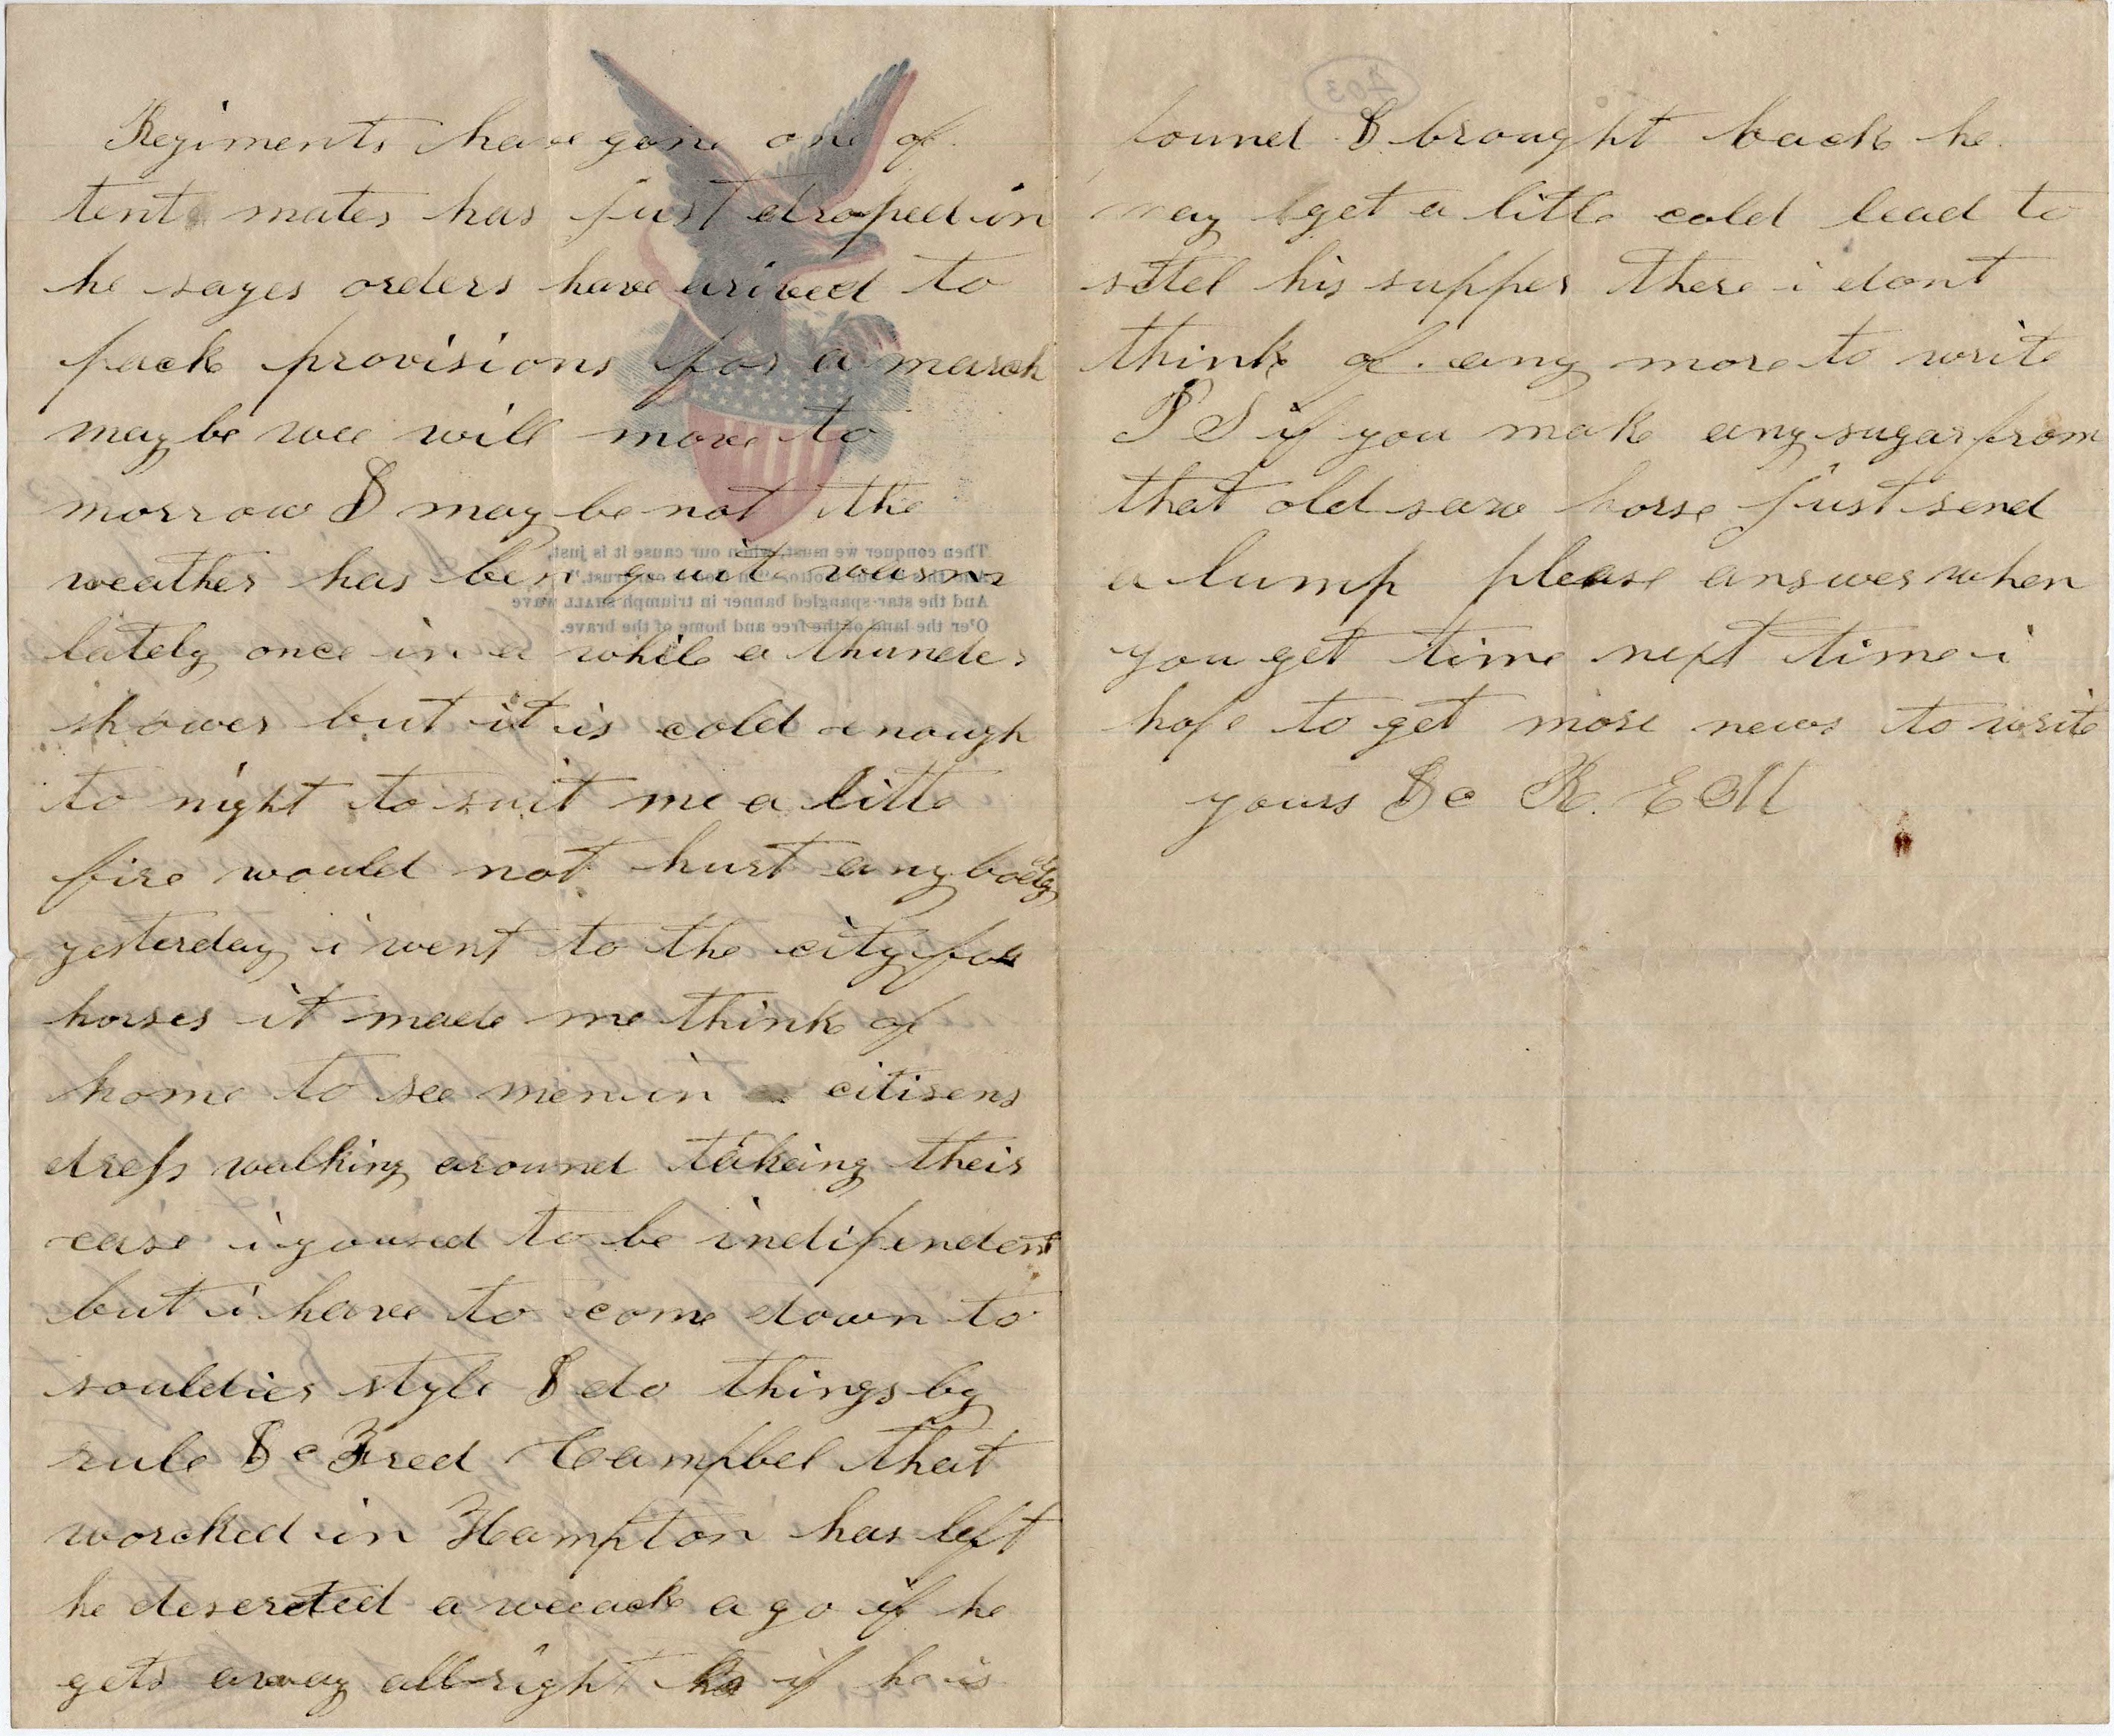 Regiments have gone one of
tent mates has just droped in
he sayes orders have arived to
pack provisions for a march
maybe wee will move to
morrow & may be not the
weather has ben quit warm
lately once in a while a thunder
shower but it is cold enough
to night to suit me a little
fire would not hurt anybody
yesterday i went to the city for
horses it made me think of
home to see men in citisens
dress walking around takeing their
ease i yoused to be indipendent
but i have to come down to
souldier style & do things by
rule &c Fred Campbel that
worcked in Hampton has left
he deserted a weeack ago if he
gets away all right if he is
found & brought back he
may get a little cold lead to
settel his supper there i dont
think of any more to write
P S if you make any sugar from
that old saw horse just send
a lump please answer when
you get time next time i
hope to get more news to write
yours &c R. E M
403
Then conquer we must, when our cause it is just,
And this our motto, "In God is our trust."
And the star-spangled banner in triumph SHALL wave
O'er the land of the free and home of the brave.